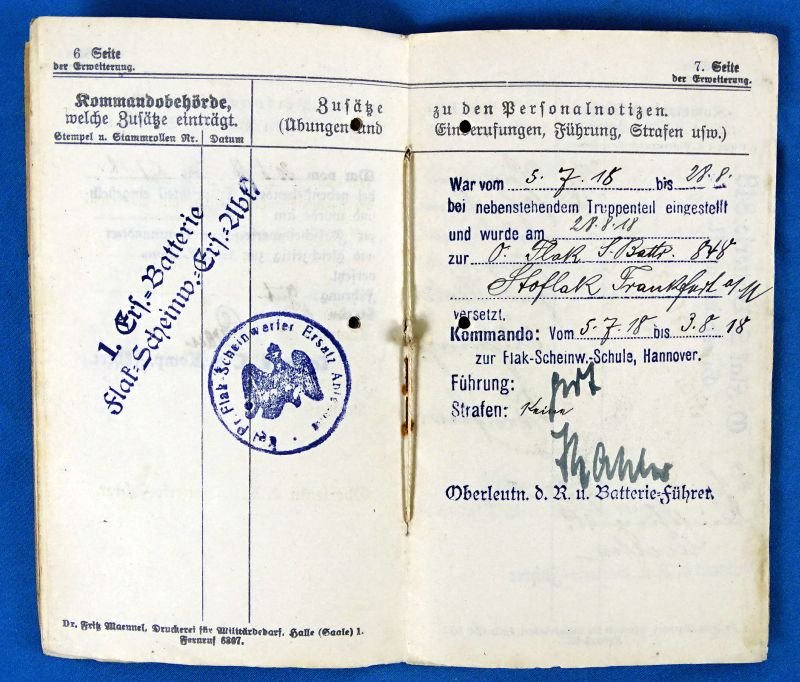 6 Seite
der Erweiterung.
Kommandobehörde,
welche Zusätze einträgt.
Stempel u. Stammrollen Nr.
Datum
Zusätze
(Übungen und
1. Ers.=Batterie
Flak=Scheinw.=Ers.=Abt.
Kgl. Pr. Flak-Scheinwerfer Ersatz
Dr. Fritz Maennel, Druckerei für Militärbedarf. Halle (Saale) 1.
Fernruf 6307.
7. Seite
der Erweiterung.
zu den Personalnotizen.
Einberufungen, Führung, Strafen usw.)
War vom 5.7.18 bis 28.8.
bei nebenstehendem Truppenteil eingestellt
und wurde am 28.8.18
zur O. Flak S. Battr. 848
Stoflak Frankfurt a/M
versetzt.
Kommando: Vom 5.7.18 bis 3.8.18
zur Flak-Scheinw.-Schule, Hannover.
Führung: gut
Strafen: Keine
Oberleutn. d. R. u. Batterie-Führer.